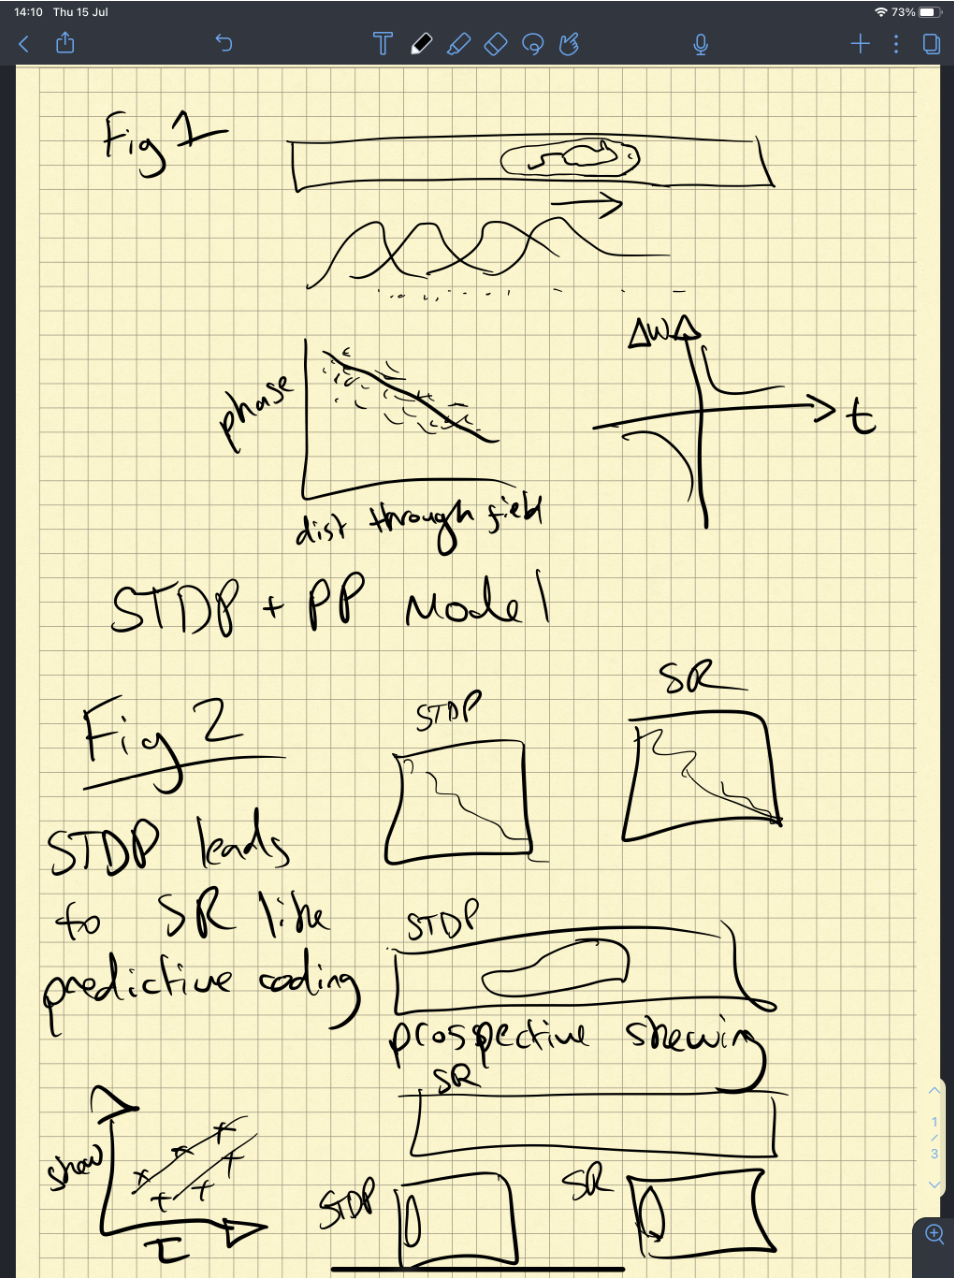 14:10 Thu 15 Jul
73%
T
Fig 1
ΔW
phase
t
dist through field
STDP + PP Model
SR
STDP
Fig 2
STDP leads
to SR like
predictive coding
STDP
prospective skewing
SR
skew
STDP
SR
τ
1
/
3